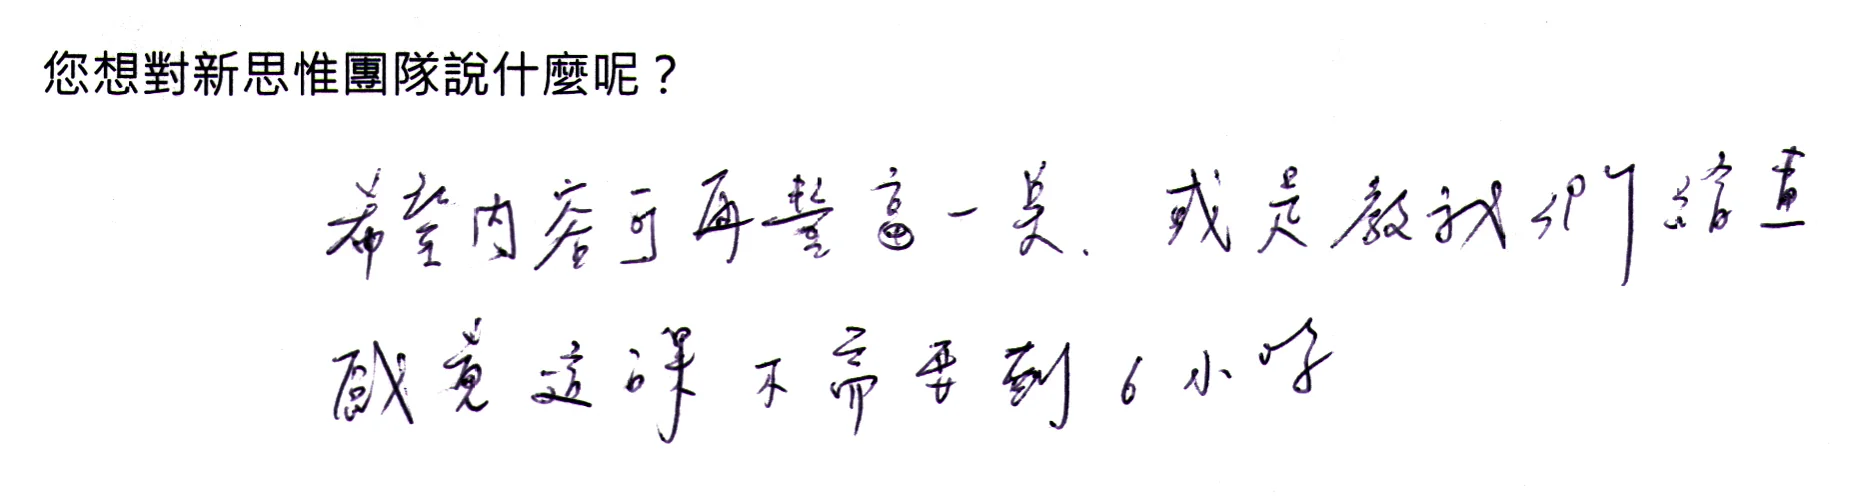 您想對新思惟團隊說什麼呢？
希望內容可再豐富一點. 或是教我們繪畫
感覺這課不需要到6小時